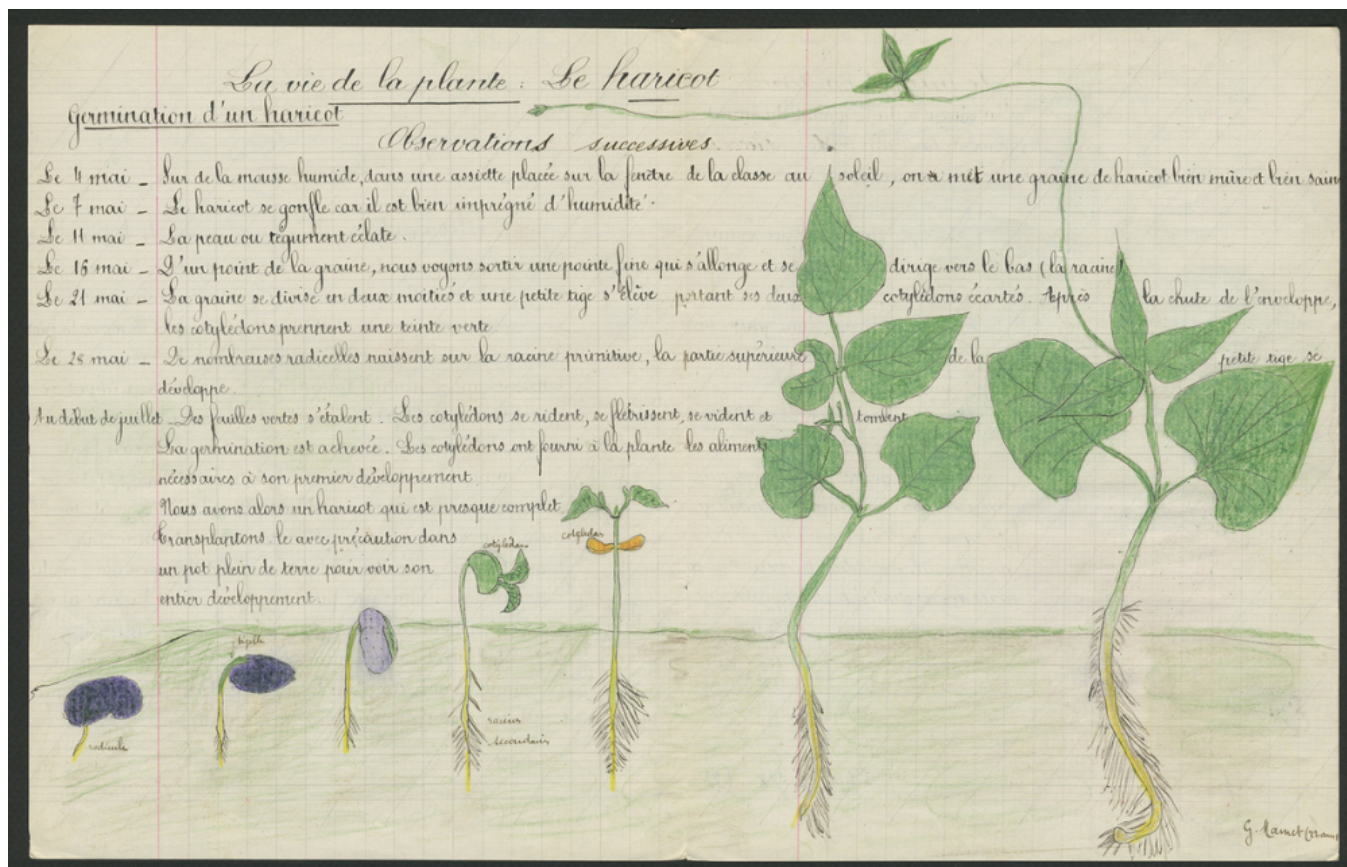 La vie de la plante : Le haricot
Germination d'un haricot
Observations successives.
Le 4 mai _ Sur de la mousse humide, dans une assiette placée sur la fenêtre de la classe au soleil, on met une graine de haricot bien mûre et bien sain
Le 7 mai _ Le haricot se gonfle car il est bien imprégné d'humidité.
Le 11 mai _ La peau ou tégument éclate.
Le 16 mai _ D'un point de la graine, nous voyons sortir une pointe fine qui s'allonge et se dirige vers le bas (la racine)
Le 21 mai _ La graine se divise en deux moitiés et une petite tige s'élève portant ses deux cotylédons écartés. Après la chute de l'enveloppe,
les cotylédons prennent une teinte verte.
Le 28 mai _ De nombreuses radicelles naissent sur la racine primitive, la partie supérieure de la petite tige se
développe.
Au début de juillet _ Des feuilles vertes s'étalent. Les cotylédons se rident, se flétrissent, se vident et tombent
La germination est achevée. Les cotylédons ont fourni à la plante les aliments
nécessaires à son premier développement.
Nous avons alors un haricot qui est presque complet.
Transplantons le avec précaution dans
un pot plein de terre pour voir son
entier développement.
cotylédon
cotylédon
tigelle
radicule
racines
secondaires